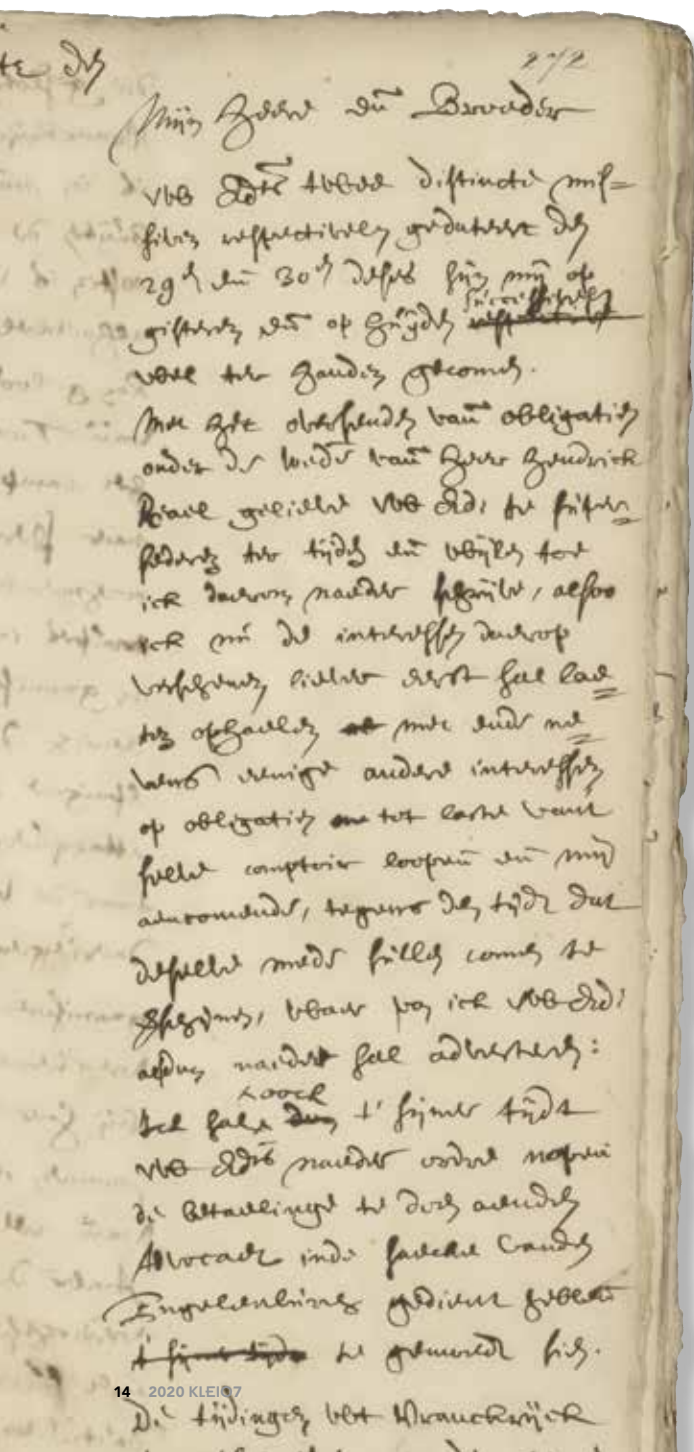 te den
272
Mijn Heere en̄ Broeder
uwe Edts twee distincte mis=
siven respectivelyen gedateert den
29en en̄ 30en deses sijn mij op
successivelyck
gisteren en̄ op huijden
wel ter handen gecomen.
Met het oversenden van̄ obligatien
onder de wede van̄ Heer Hendrick
Reael gelieve uwe Ed: te super=
sederen ter tijden en̄ wijlen toe
ick daerom naeder schrijve, alsoo
ick nu de interessen daerop
verschenen liever eerst sal lae=
ten ophaelen met ende ne=
vens eenige andere interessen
op obligatien tot laste vant
selve comptoir loopen̄ en̄ mij
aencomende, tegens den tijdt dat
deselve mede sullen comen te
verschijnen, waer van ick uwe Ed:
alsdan naeder sal adverteren:
oock
Ick sal t' sijner tijdt
uwe Edts naeder ordre nopen̄
de betaelinge te doen aenden
Advocaet inde saecke vanden
Engelenburch gedient hebben̄
t' sijner tijde te gemoedt sien.
14 2020 KLEIO7
De tijdingen uyt Vranckrijck